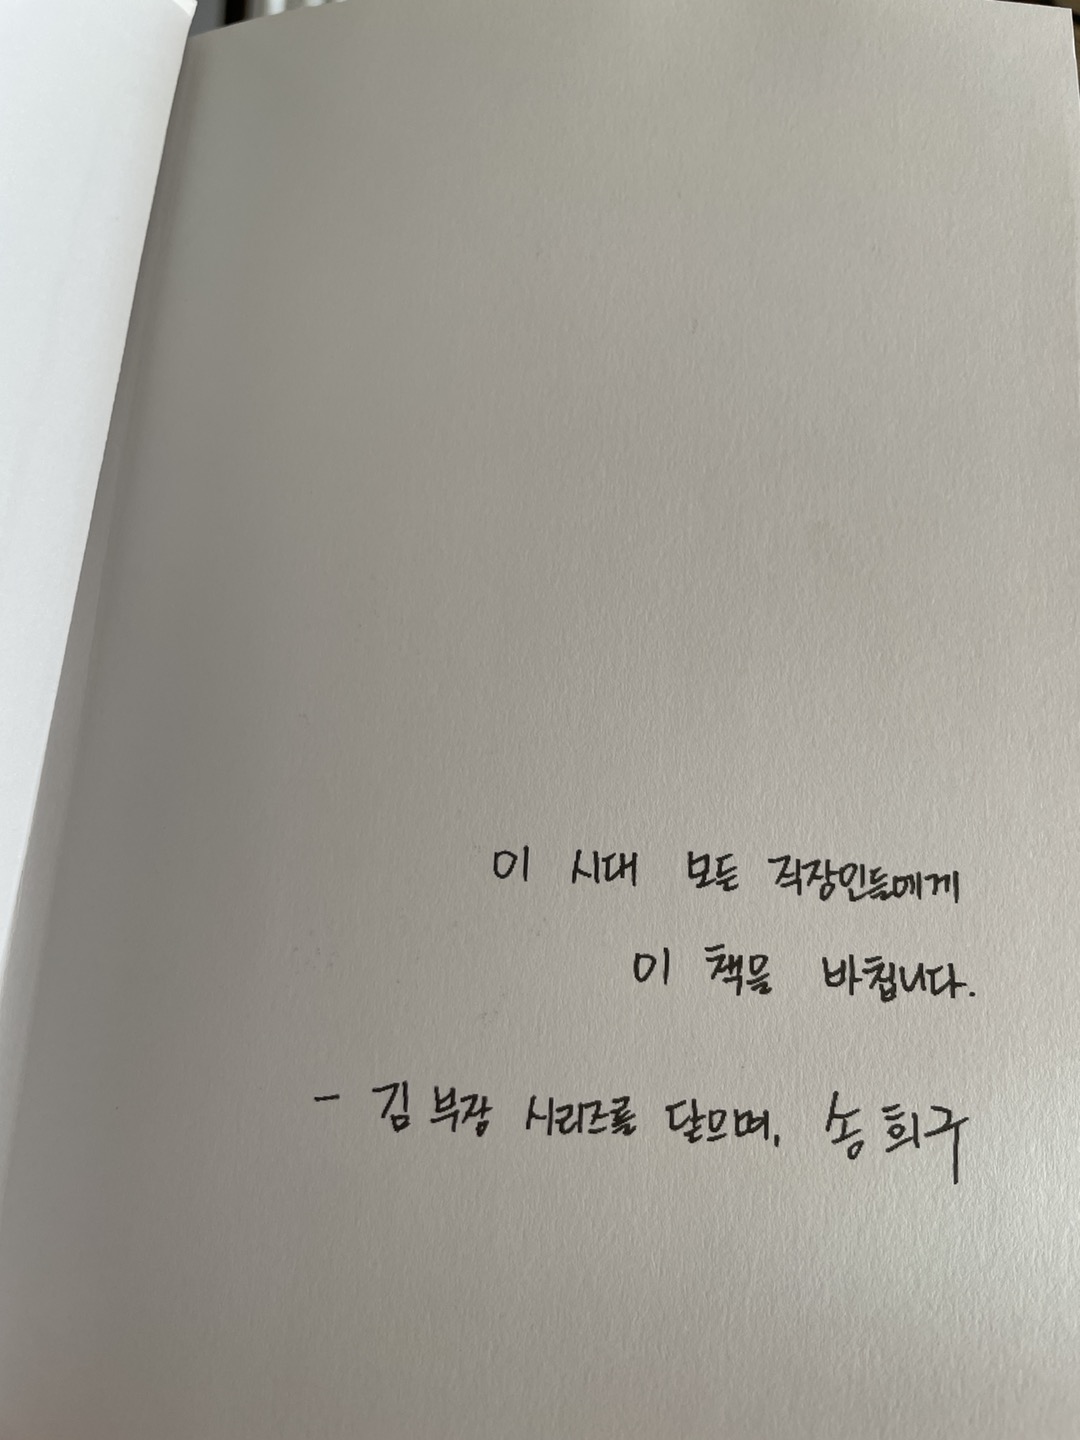 이 시대 모든 직장인들에게
이 책을 바칩니다.
- 김 부장 시리즈를 닫으며, 송희구